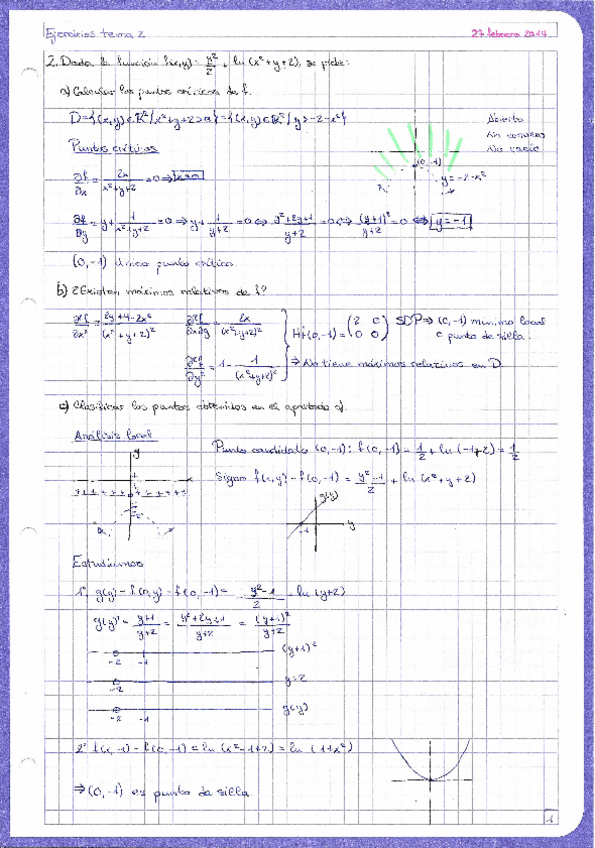 Ejercicios tema 2
27 febrero 2014
2. Dada la función f(x,y) = y²/2 + ln (x²+y+2), se pide:
a) Calcular los puntos críticos de f.
D = {(x,y) ∈ ℝ² / x²+y+2>0} = {(x,y) ∈ ℝ² / y > -2-x²}
Abierto
No convexo
No vacío
Puntos críticos
(0,-1)
y = -2-x²
∂f/∂x = 2x/(x²+y+2) = 0 ⇒ x=0
∂f/∂y = y + 1/(x²+y+2) = 0 ⇒ y + 1/(y+2) = 0 ⇔ (y²+2y+1)/(y+2) = 0 ⇔ (y+1)²/(y+2) = 0 ⇔ y=-1
(0,-1) único punto crítico
b) ¿Existen máximos relativos de f?
∂²f/∂x² = (2y+4-2x²)/(x²+y+2)²
∂²f/∂x∂y = 2x/(x²+y+2)²
Hf(0,-1) = (2 0 / 0 0) SDP ⇒ (0,-1) mínimo local
o punto de silla.
∂²f/∂y² = 1 - 1/(x²+y+2)²
⇒ No tiene máximos relativos en D.
c) Clasificar los puntos obtenidos en el apartado a).
Análisis local
Punto candidato (0,-1): f(0,-1) = 1/2 + ln (-1+2) = 1/2
y
Signo f(x,y) - f(0,-1) = (y²-1)/2 + ln (x²+y+2)
g(y)
-1
y
-2
Estudiamos
1º g(y) = f(0,y) - f(0,-1) = (y²-1)/2 + ln (y+2)
g(y)' = (y²+2y+1)/(y+2) = (y+1)²/(y+2)
-2 -1 (y+1)²
-2
-2 -1 g(y)
2º f(x,-1) - f(0,-1) = ln (x²-1+2) = ln (1+x²)
⇒ (0,-1) es punto de silla
1